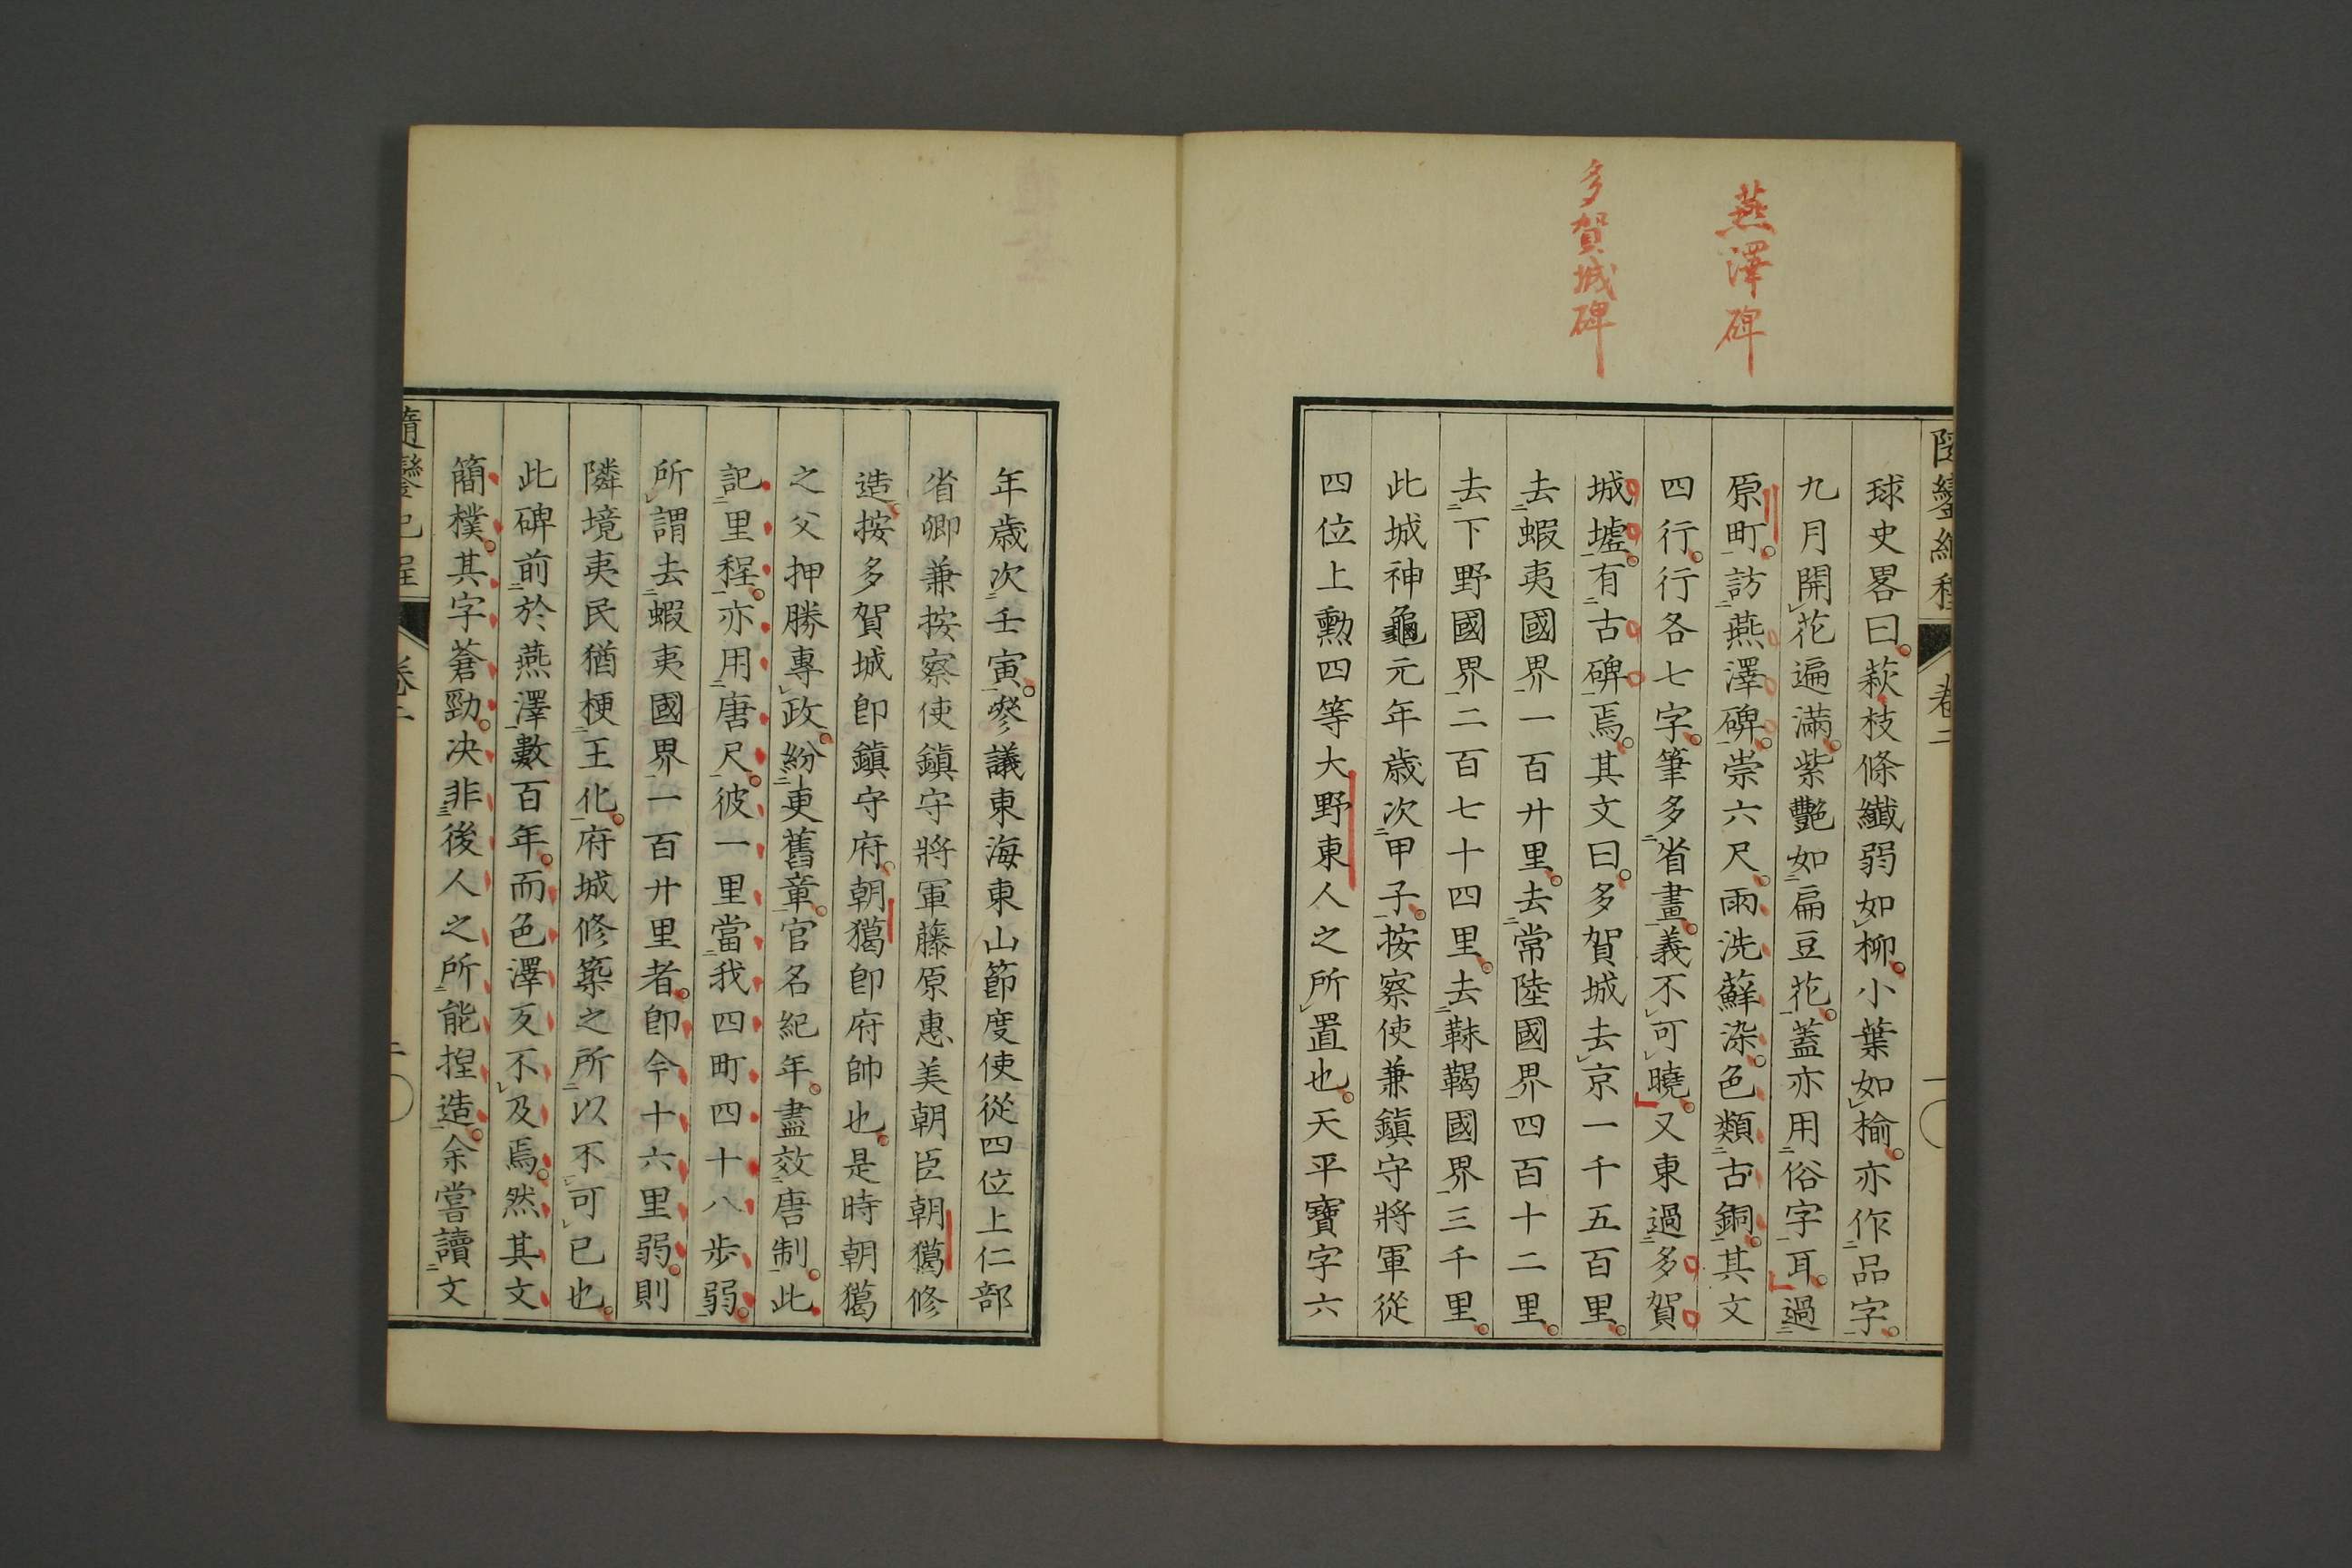 燕澤碑
多賀城碑
卷二
球史畧曰。萩枝條纖弱如柳。小葉如榆。亦作品字。
九月開花遍滿。紫艷如扁豆花。蓋亦用俗字耳。過
原町。訪燕澤碑。崇六尺。雨洗蘇染。色類古銅。其文
四行。行各七字。筆多省畫。義不可曉。又東過多賀
城墟。有古碑焉。其文曰。多賀城去京一千五百里。
去蝦夷國界一百廾里。去常陸國界四百十二里。
去下野國界二百七十四里。去靺鞨國界三千里。
此城神龜元年歲次甲子。按察使兼鎮守將軍從
四位上勳四等大野東人之所置也。天平寶字六
年歲次壬寅。參議東海東山節度使從四位上仁部
省卿兼按察使鎮守將軍藤原惠美朝臣朝獦修
造。按多賀城卽鎮守府。朝獦卽府帥也。是時朝獦
之父押勝專政。紛更舊章。官名紀年。盡效唐制。此
記里程。亦用唐尺。彼一里當我四町四十八步弱。
所謂去蝦夷國界一百廾里者。卽今十六里弱。則
隣境夷民猶梗王化。府城修築之所以不可已也。
此碑前於燕澤數百年。而色澤友不及焉。然其文
簡樸。其字蒼勁。决非後人之所能揑造。余嘗讀文
隨鑾紀程
卷二